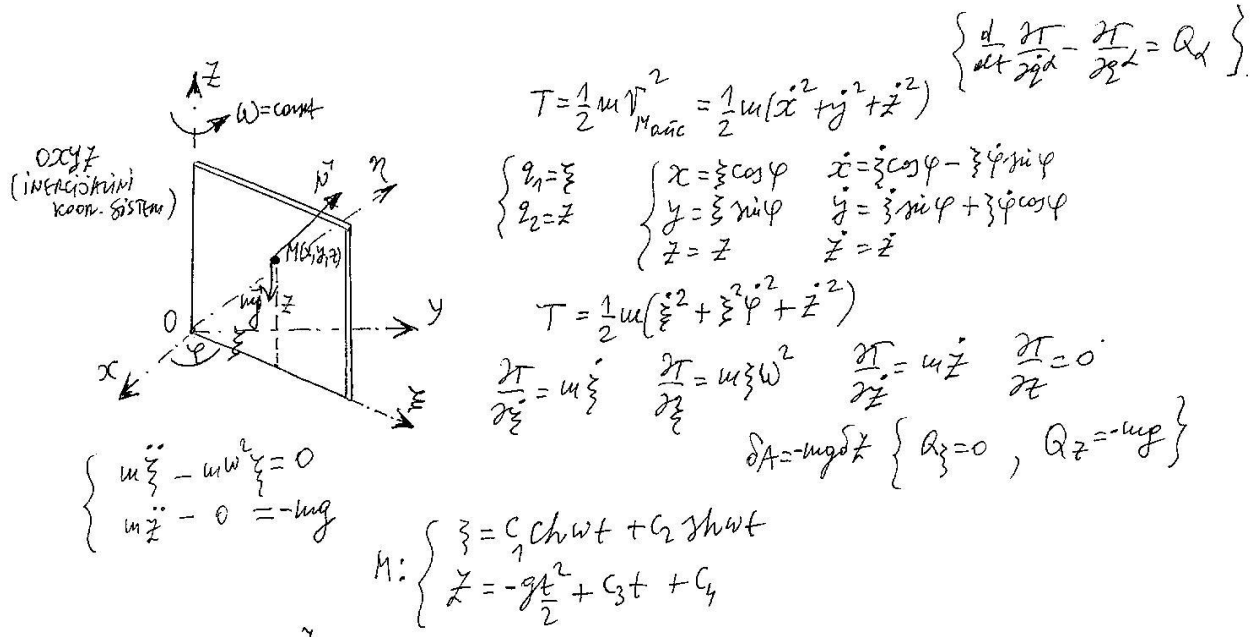 { d/dt ∂T/∂q̇^α − ∂T/∂q^α = Q_α }
Z
ω=const
OXYZ
(INERCIJALNI
KOOR. SISTEM)
N⃗
η
M(x,y,z)
mg⃗
z
O
y
φ
ξ
x
ξ
T = 1/2 m V²_Mапс = 1/2 m(ẋ² + ẏ² + ż²)
{ q₁ = ξ
q₂ = z
{ x = ξ cosφ ẋ = ξ̇ cosφ − ξφ̇ sinφ
y = ξ sinφ ẏ = ξ̇ sinφ + ξφ̇ cosφ
z = z ż = ż
T = 1/2 m(ξ̇² + ξ²φ̇² + ż²)
∂T/∂ξ̇ = mξ̇ ∂T/∂ξ = mξω² ∂T/∂ż = mż ∂T/∂z = 0
δA = -mgδz { Q_ξ = 0 , Q_z = -mg }
{ mξ̈ − mω²ξ = 0
mz̈ − 0 = -mg
M: { ξ = C₁ chωt + C₂ shωt
z = -g t²/2 + C₃t + C₄